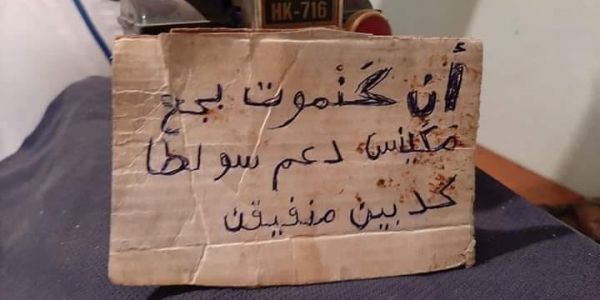 HK-716
أن كنموت بجع
مكينس دعم سولطا
كدبين منفيقن